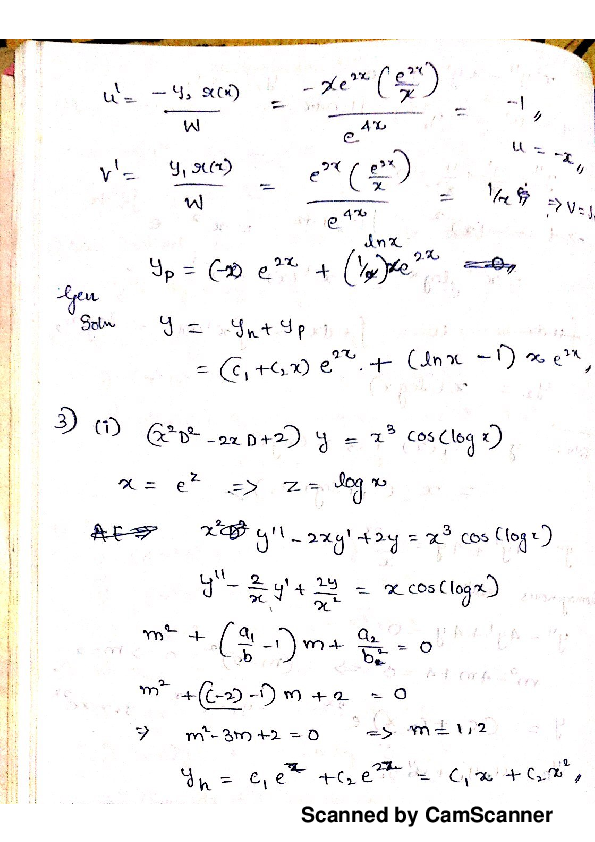 u' = -y₂ r(x) / W = -xe^{2x} (e^{2x}/x) / e^{4x} = -1,,
u = -x,,
v' = y₁ r(x) / W = e^{2x} (e^{2x}/x) / e^{4x} = 1/x ⇒ v =
ln x
y_p = (-x) e^{2x} + (1/x) xe^{2x}
Gen
Soln y = y_h + y_p
= (c₁ + c₂x) e^{2x} + (ln x - 1) x e^{2x},,
3) (i) (x²D² - 2xD + 2) y = x³ cos(log x)
x = e^z ⇒ z = log x
AE ⇒ x²D² y'' - 2xy' + 2y = x³ cos(log x)
y'' - 2/x y' + 2y/x² = x cos(log x)
m² + (a₁/b - 1) m + a₂/b² = 0
m² + ((-2) - 1) m + 2 = 0
⇒ m² - 3m + 2 = 0 ⇒ m = 1, 2
y_h = c₁e^z + c₂e^{2z} = c₁x + c₂x²,,
Scanned by CamScanner